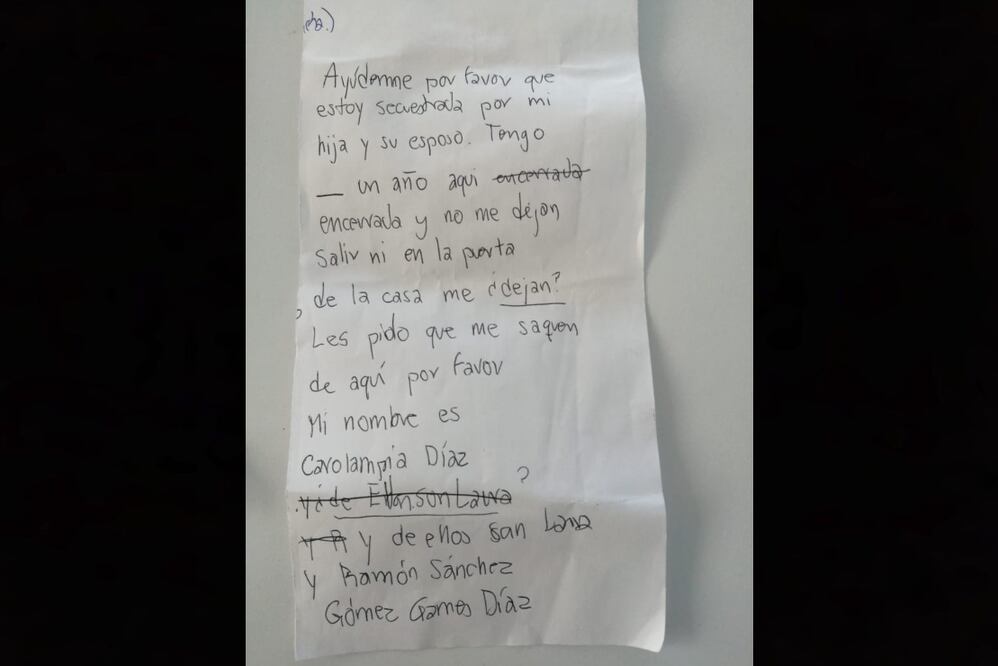 cha.)
Ayúdenme por favor que
estoy secuestrada por mi
hija y su esposo. Tengo
_ un año aqui encerrada
encerrada y no me dejan
salir ni en la puerta
de la casa me ¿dejan?
Les pido que me saquen
de aquí por favor
Mi nombre es
Carolampia Díaz
?
y de ellos san Lana
y Ramón Sánchez
Gómez Gomes Díaz